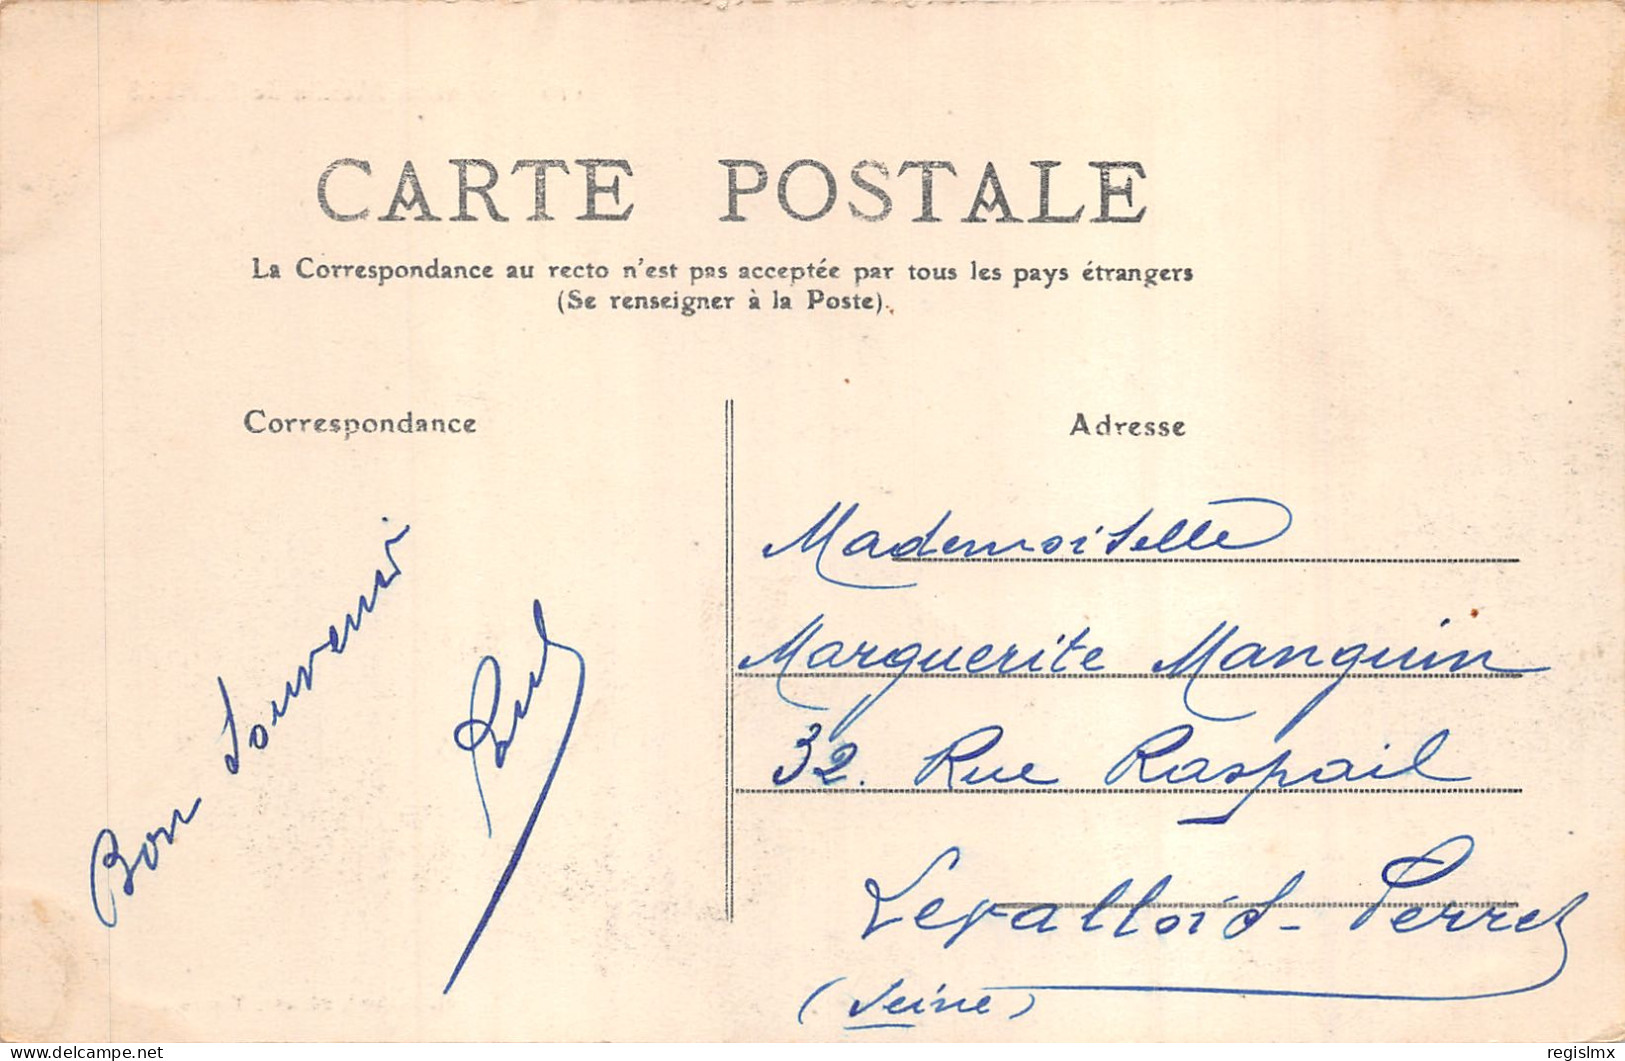 CARTE POSTALE
La Correspondance au recto n'est pas acceptée par tous les pays étrangers
(Se renseigner à la Poste).
Correspondance
Bon Souvenir
Adresse
Mademoiselle
Marguerite Manguin
32. Rue Raspail
Levallois-Perret
(Seine)
delcampe.net
regislmx